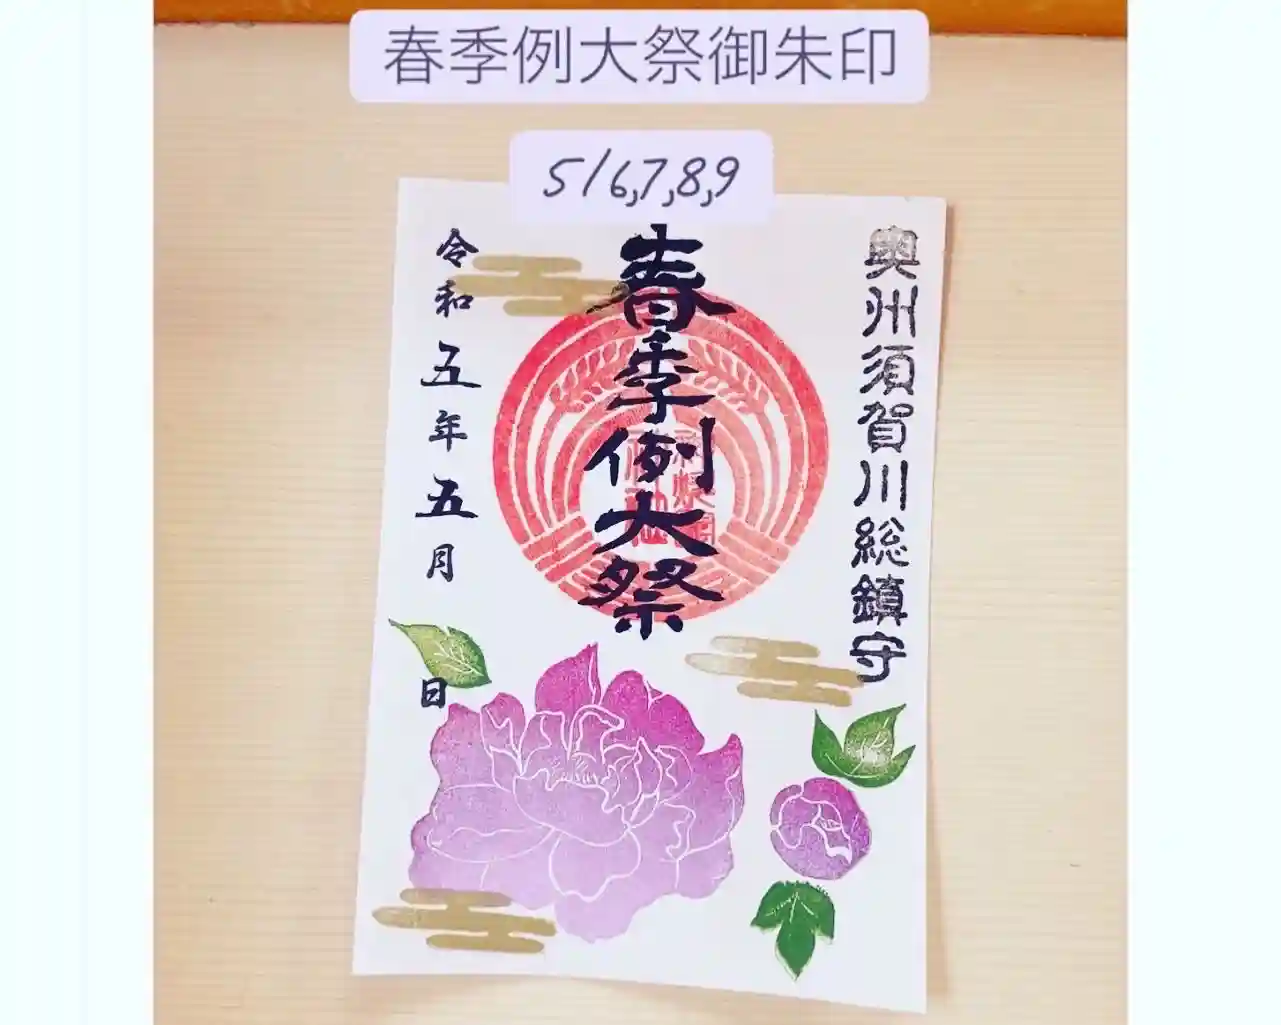 春季例大祭御朱印
5/6,7,8,9
奥州須賀川総鎮守
春季例大祭
令和五年五月 日